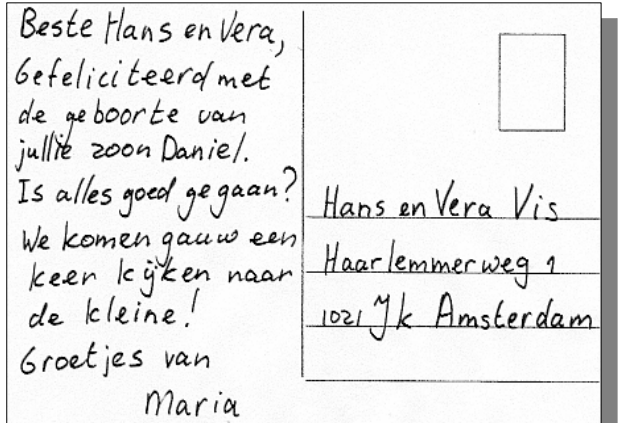 Beste Hans en Vera,
Gefeliciteerd met
de geboorte van
jullie zoon Daniel.
Is alles goed gegaan?
We komen gauw een
keer kijken naar
de kleine!
Groetjes van
Maria
Hans en Vera Vis
Haarlemmerweg 1
1021 Jk Amsterdam